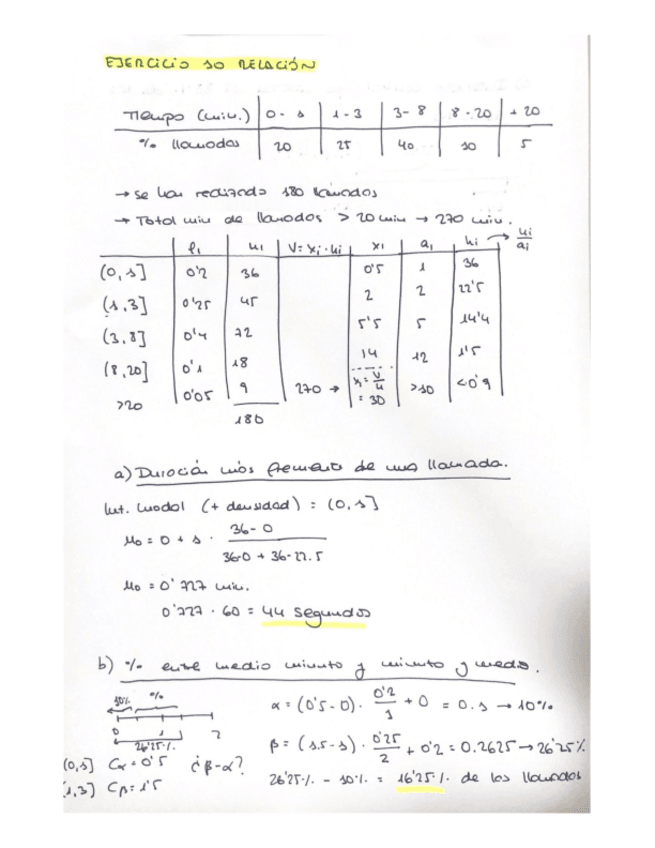 EJERCICIO 10 RELACIÓN
Tiempo (min.) 0 - 1 1 - 3 3 - 8 8 - 20 + 20
% llamadas 20 25 40 10 5
→ se han realizado 180 llamadas
→ Total min de llamadas > 20 min → 270 min.
fi ni V = xi · ni xi ai hi → ni/ai
(0, 1] 0'2 36 0'5 1 36
(1, 3] 0'25 45 2 2 22'5
(3, 8] 0'4 72 5'5 5 14'4
(8, 20] 0'1 18 14 12 1'5
>20 0'05 9 270 → xi = V/n = 30 >10 <0'9
180
a) Duración más frecuente de una llamada.
Int. modal (+ densidad) = (0, 1]
Mo = 0 + 1 · (36 - 0)/(36-0 + 36-22.5)
Mo = 0'727 min.
0'727 · 60 = 44 segundos
b) % entre medio minuto y minuto y medio.
10% %
0 1 2
26'25%
α = (0'5 - 0) · 0'2/1 + 0 = 0.1 → 10%
β = (1.5 - 1) · 0'25/2 + 0'2 = 0.2625 → 26'25%
(0, 1] Cα = 0'5 ¿β - α?
(1, 3] Cβ = 1'5
26'25% - 10% = 16'25% de las llamadas